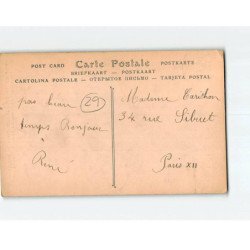 POST CARD Carte Postale POSTKARTE
BRIEFKAART — POSTKAART
CARTOLINA POSTALE — ОТКРЫТОЕ ПИСЬМО — TARJETA POSTAL
pas beau (29)
temps Bonjour
René
Madame
34 rue Sibuet
Paris XII